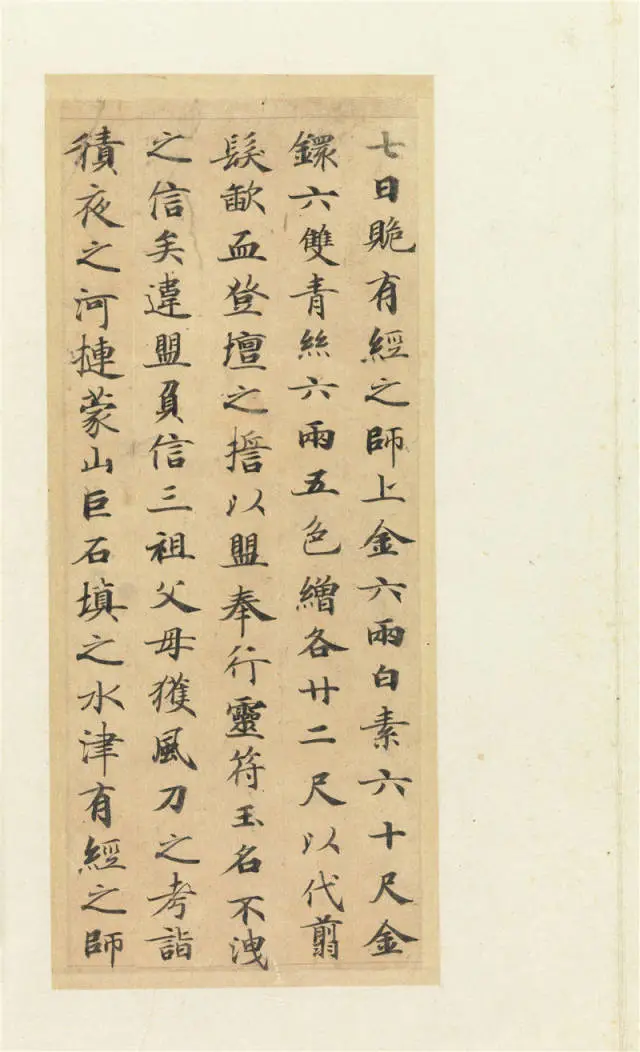 七日賧有經之師上金六兩白素六十尺金
鐶六雙青絲六兩五色繒各廿二尺以代翦
髮歃血登壇之誓以盟奉行靈符玉名不洩
之信矣違盟負信三祖父母獲風刀之考詣
積夜之河揵蒙山巨石填之水津有經之師